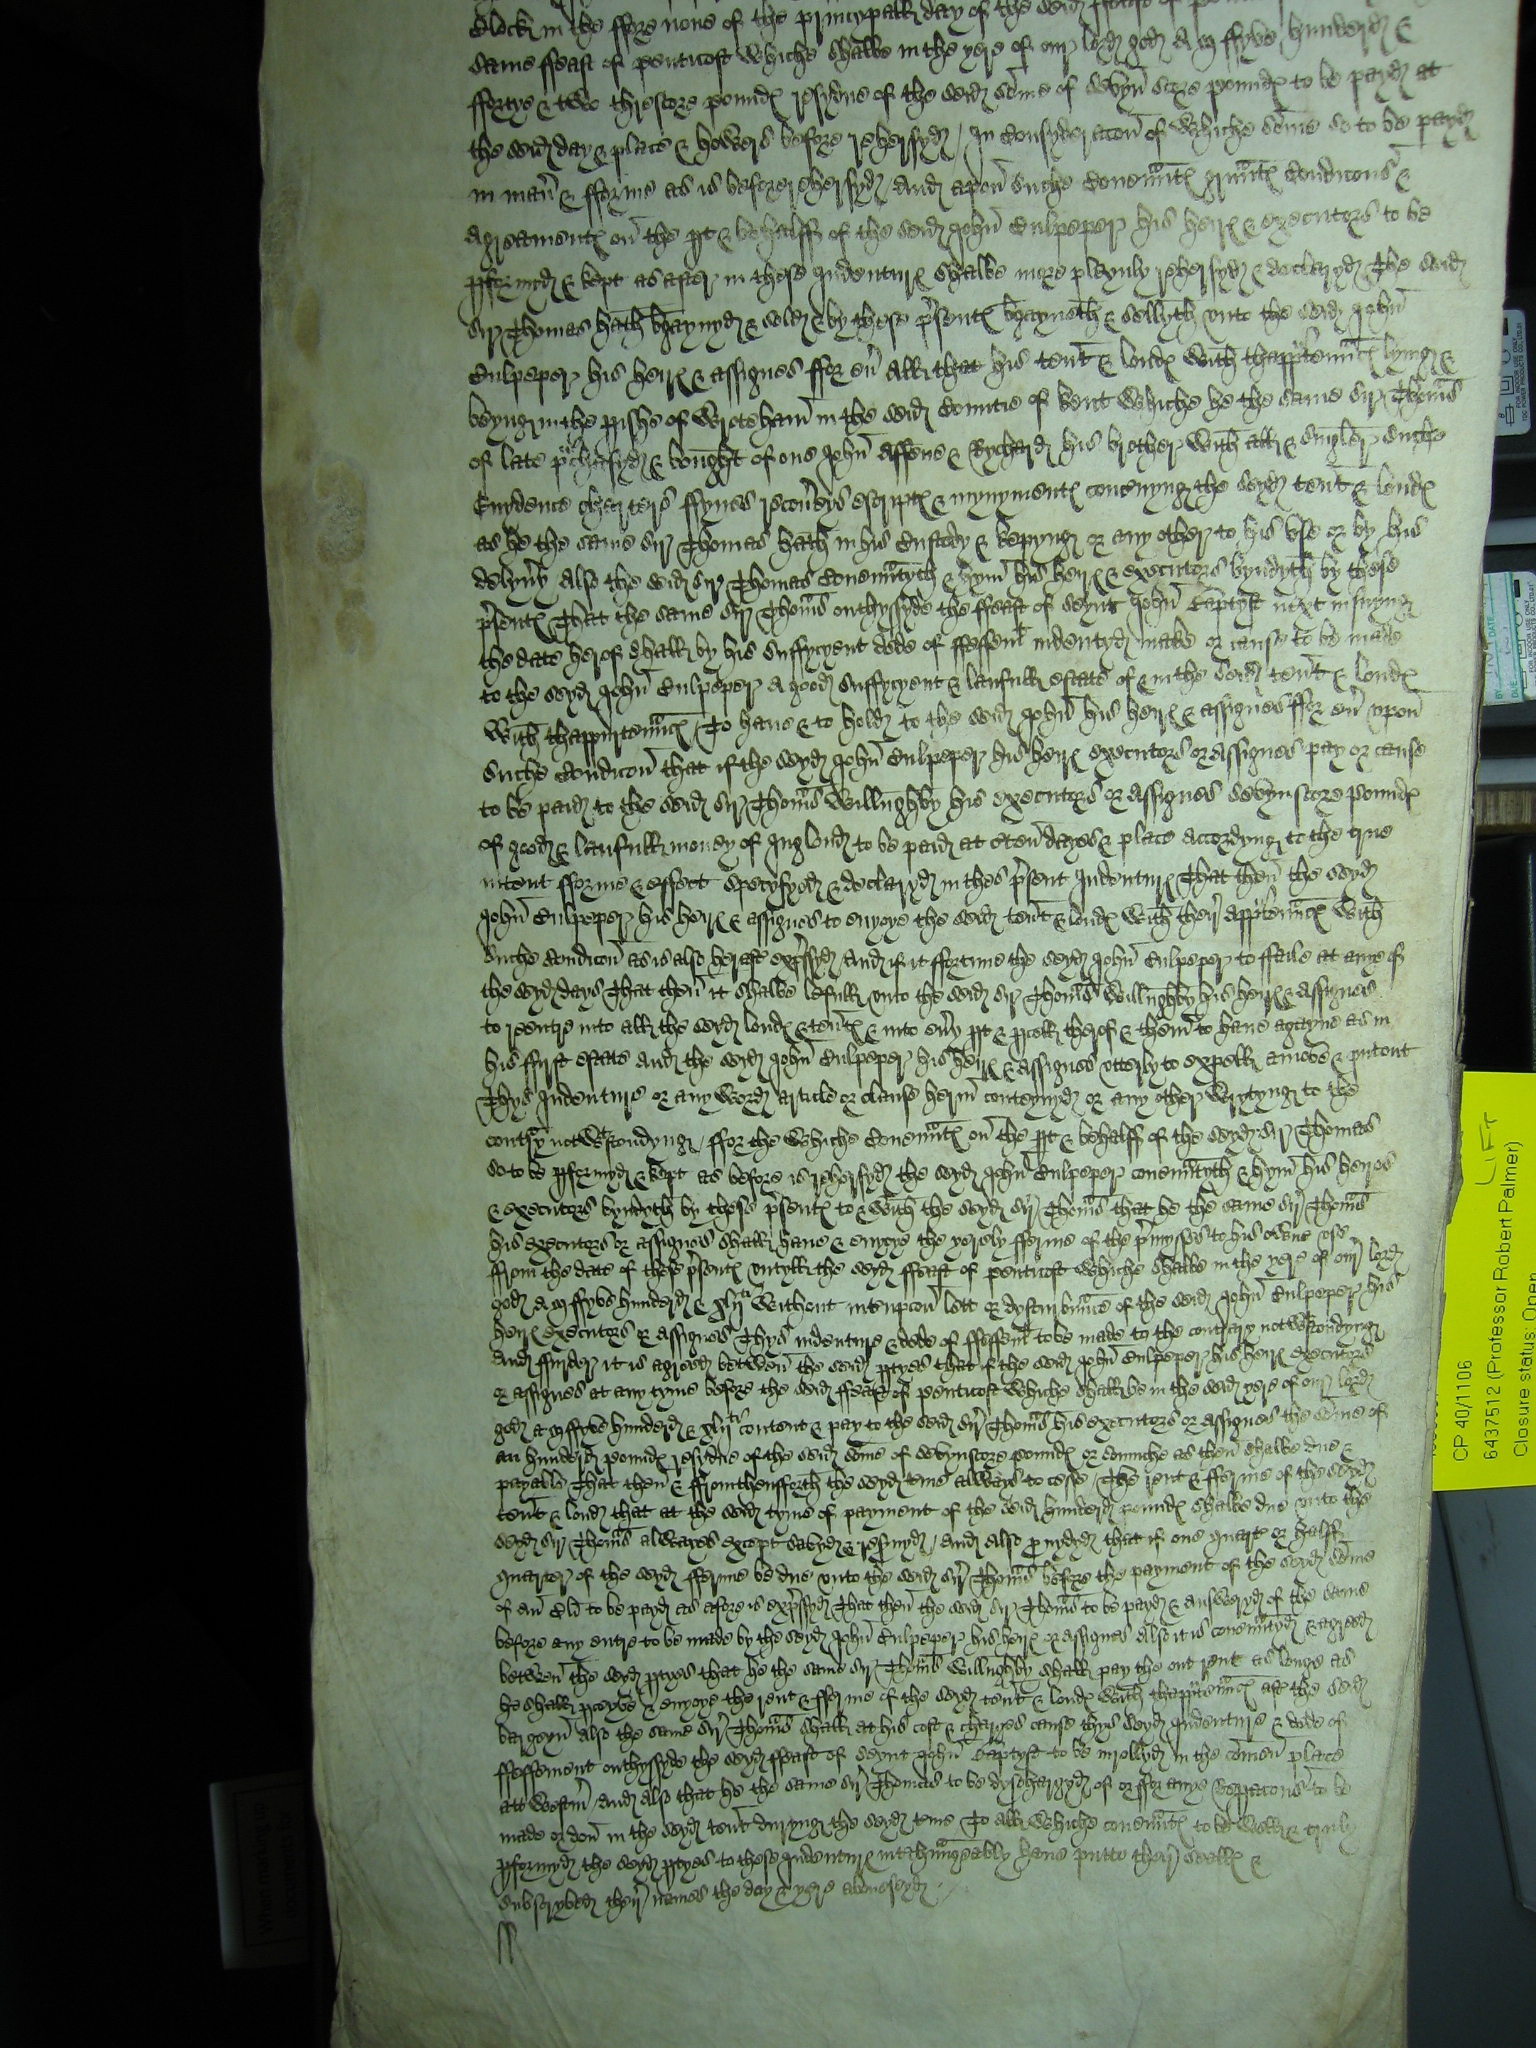 Clock in the ffore none of the princypall day of the seid ffeast of
same ffeast of penticost whiche shalbe in the yere of our lord god A M ffyve hunderd &
ffortye & two threscore poundes resydue of the seid some of sevyn score poundes to be payd at
the seid day & place & howers before rehersyd / In consyderacon of whiche some so to be payd
in man & fforme as is before rehersyd And apon suche covenntes grntes condicons &
agreamentes on the pt & behalff of the seid John Culpeper his heires & executors to be
pformyd & kept as after in these Indentures shalbe more playnly rehersyd & declaryd The seid
Sir Thomas hath bgaynyd & sold & by these psentes bgayneth & sellyth unto the seid John
Culpeper his heires & assignes ffor ev All that his tent & londes with thapptennces lying &
beyng in the pishe of Wroteham in the seid Countie of Kent whiche he the same Sir Thomas
of late pchasyd & bought of one John Affene & Rychard his brother with all & singler suche
Evydence charters ffynes recoverys escriptes & mynymentes concnyng the seyd tent & londes
as he the same Sir Thomas hath in his custody & kepyng or any other to his use or by his
delyvy Also the seid Sir Thomas covenntyth & hym his heires & executors byndyth by these
psentes That the same Sir Thomas onthyssyde the ffeast of seynt John Baptyst next insuyng
the date herof shall by his suffycyent dede of ffeffemt indentyd make or cause to be made
to the seyd John Culpeper a good suffycyent & laufull estate of & in the seid tent & londes
with thappurtennces To have & to hold to the seid John his heires & assignes ffor ev upon
suche condicon that if the seyd John Culpeper his heires executors or assignes pay or cause
to be paid to the seid Sir Thomas Willughby his executors or assignes sevynscore poundes
of good & laufull money of Inglond to be paid at cten dayes & place accordyng to the true
intent fforme & effect specyfyed & declaryd in thes psent Indentures That then the seyd
John Culpeper his heires & assignes to enyoye the seid tent & londes with ther apptennces with
suche condicon as is also heraft expssyd And if it ffortune the seyd John Culpeper to ffaile at anye of
the seyd days That then it shalbe lefull unto the seid Sir Thomas Willughby his heires & assignes
to reentre into all the seyd londes & tentes & into evy pt & pcell therof & them to have agayne as in
his ffyrst estate And the seid John Culpeper his heires & assignes utterly to expell amove & put out
Thys Indenture or any word article or clause herin conteynyd or any other wrytyng to the
contrary notwtstondyng / ffor the whiche covenntes on the pt & behalff of the seyd Sir Thomas
so to be pformyd & kept as before is rehersyd the seyd John Culpeper covenntyth & hym his heires
& executors byndyth by these psentes to & with the seyd Sir Thomas that he the same Sir Thomas
his executors or assignes shall have & enyoye the yerely fferme of the pmysses to his owne use
ffrom the date of these psentes untyll the seyd ffeast of penticost whiche shalbe in the yere of our lord
god A M ffyve hunderd & xlijti without intrupcon lett or dysturbnce of the seid John Culpeper his
heires executors or assignes Thys indenture & dede of ffeffemt to be made to the contrary notwtstondyng
And ffurder it is agreed between the seid ptyes that if the seid John Culpeper his heires executors
or assignes at any tyme before the seid ffeast of penticost whiche shalbe in the seid yere of our lord
god A M ffyve hunderd & xlijti content & pay to the seid Sir Thomas his executors or assignes the some of
an hunderd poundes resydue of the seid some of sevynscore poundes or somuche as then shalbe due &
payable That then & ffromthensfforth the seyd tme alweys to cesse / The rent & fferme of the seyd
tent & lond that at the seid tyme of payment of the seid hunderd poundes shalbe due unto the
seyd Sir Thomas alwayes except savyd & resvyd / And also provydyd that if one quart or halff
quarter of the seyd fferme be due unto the seid Sir Thomas before the payment of the seyd some
of an Cli to be payd as afore is expssyd That then the seid Sir Thomas to be payd & answeryd of the same
before any entre to be made by the seyd John Culpeper his heires or assignes Also it is covenntyd & agreed
between the seyd ptyes that he the same Sir Thomas Willughby shall pay the out rent as longe as
he shall pceyve & enyoye the rent & fferme of the seyd tent & londes with thapptennces aft the seid
bargeyn Also the same Sir Thomas shall at his cost & charges cause thys seyd Indenture & dede of
ffeffement onthyssyde the seyd ffeast of seynt John Baptyst to be inrollyd in the comen place
att Westm And also that he the same Sir Thomas to be dyschargyd of or ffor anye reppacons to be
made or don in the seyd tent duryng the seyd tme To all whiche covenntes to be well & truly
pformyd the seyd ptyes to these Indentures intchaungeably have putto their sealles &
subscrybed their names the day & yere aboveseyd
CP 40/1106
6437512 (Professor Robert Palmer)
Closure status: Open
LIFT